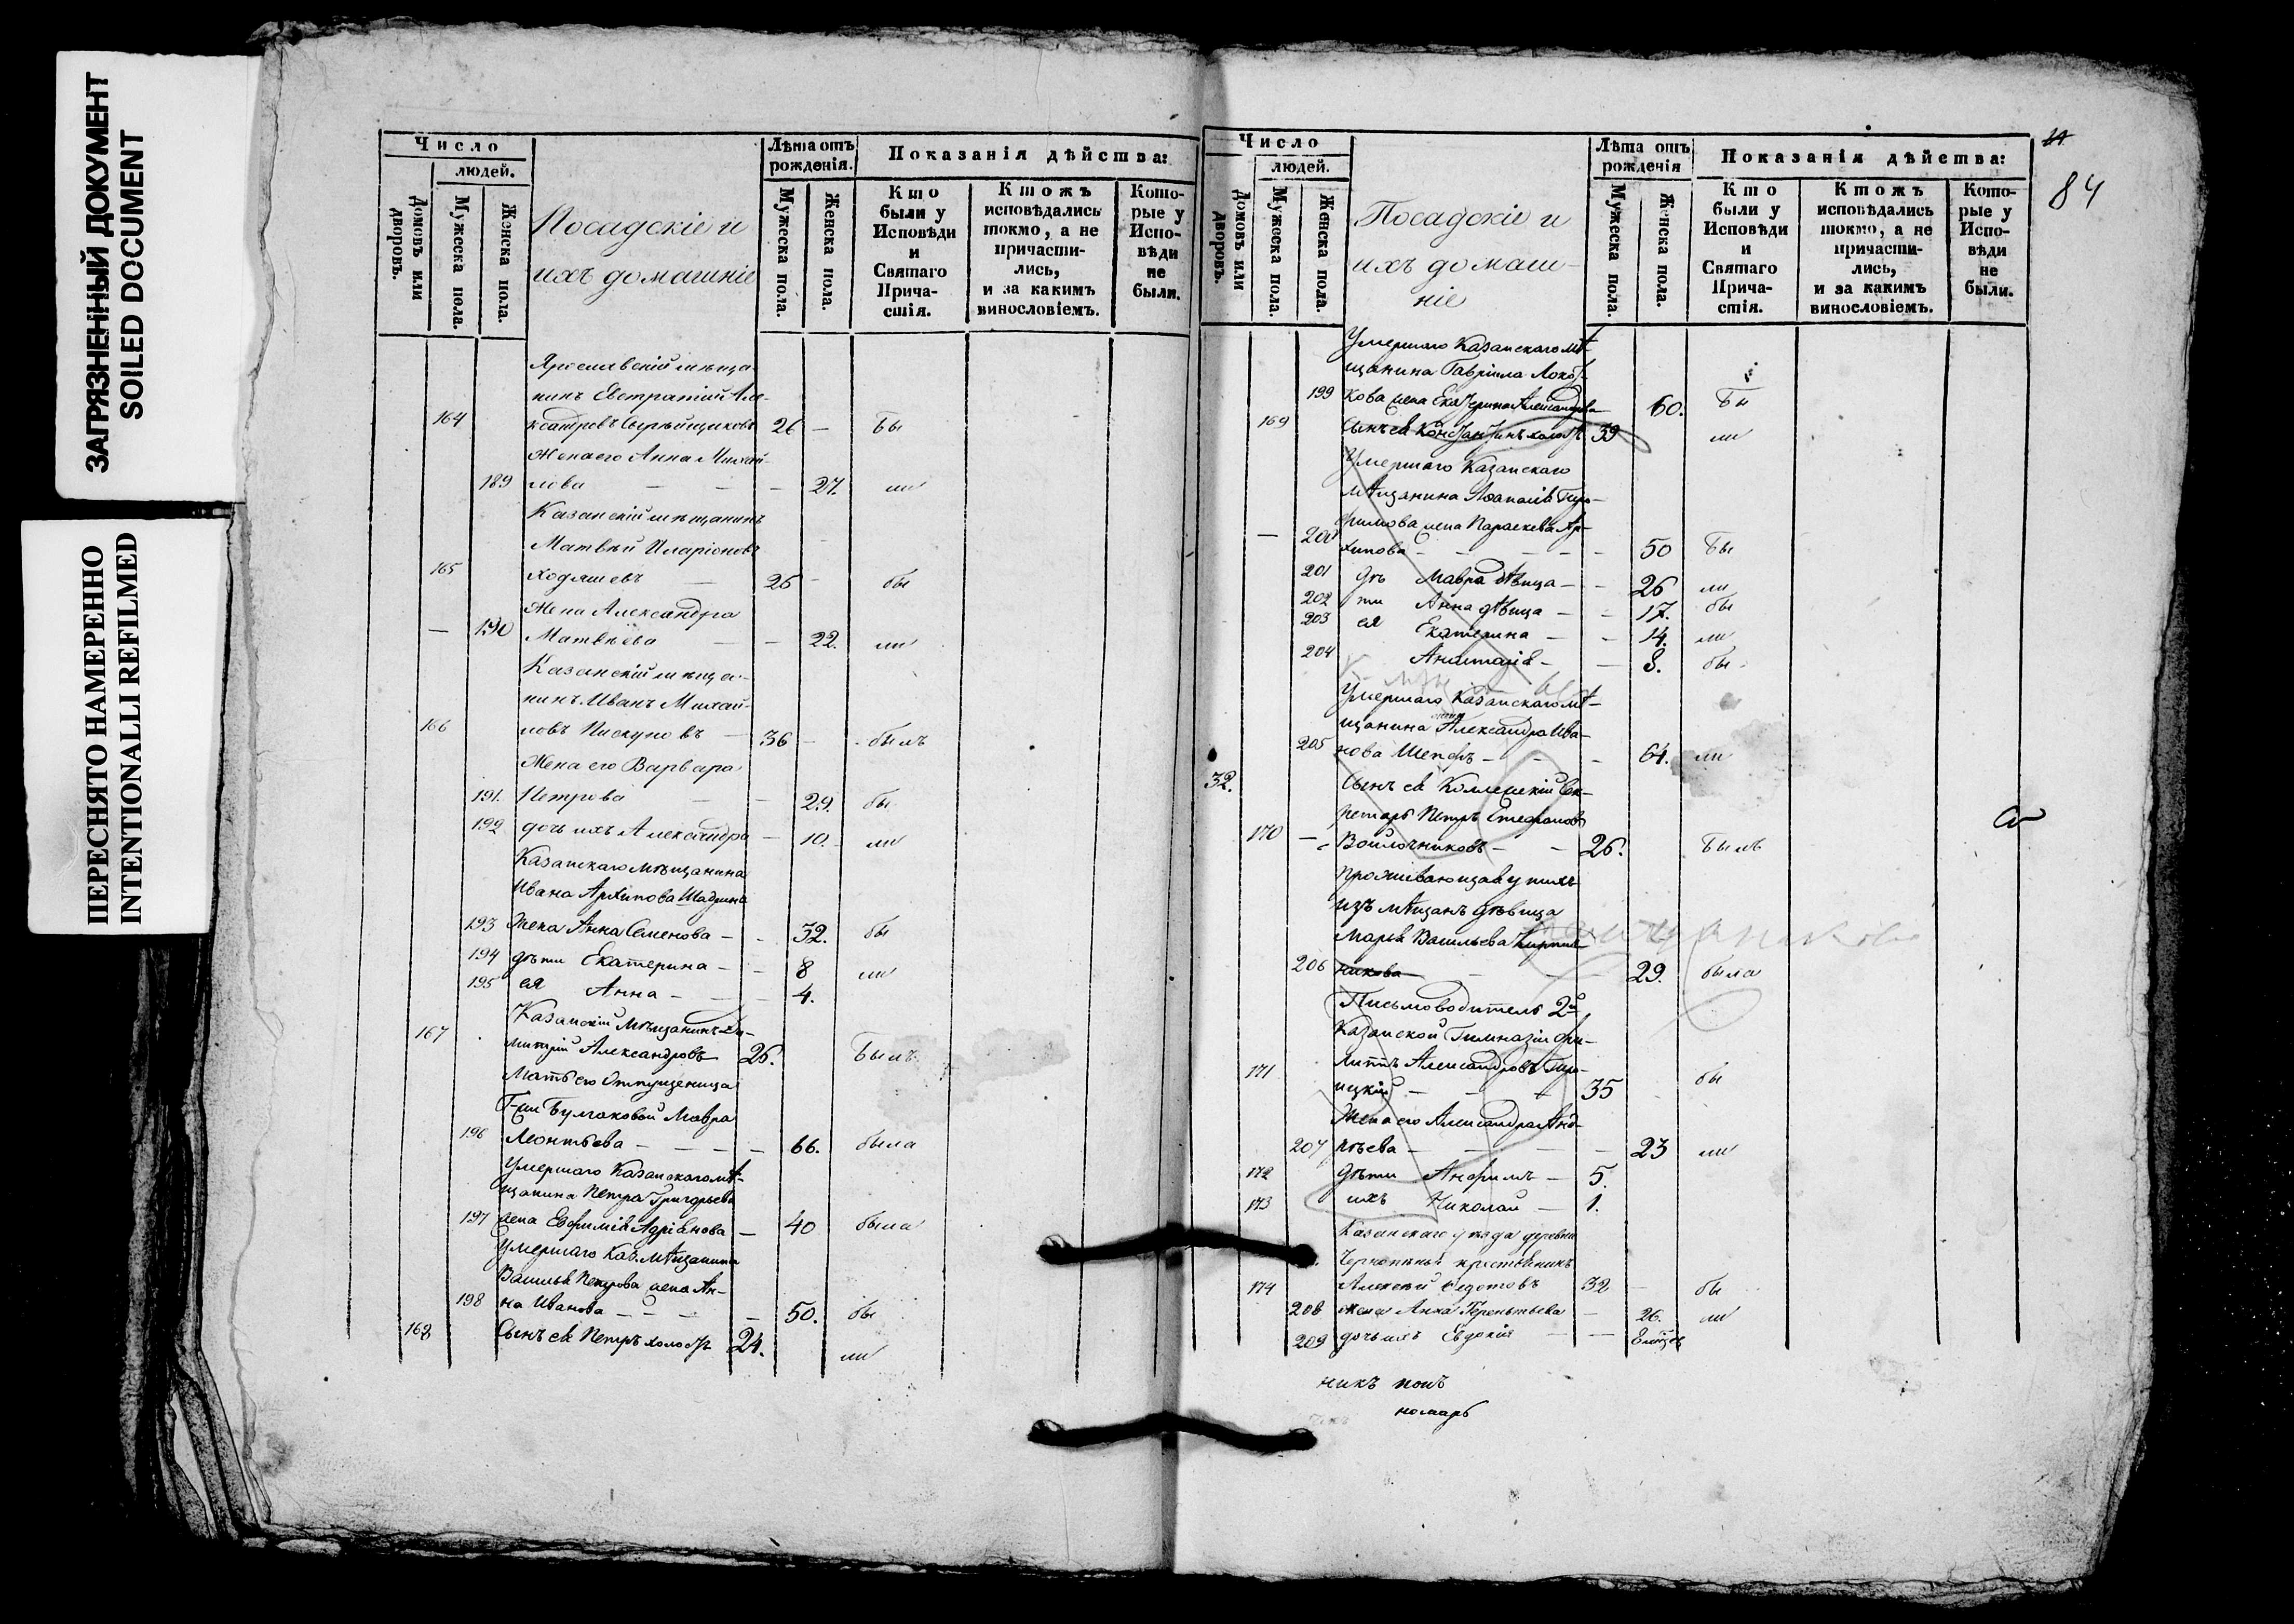 ЗАГРЯЗНЕННЫЙ ДОКУМЕНТ
SOILED DOCUMENT
ПЕРЕСНЯТО НАМЕРЕННО
INTENTIONALLI REFILMED
Число
людей.
Домовъ или дворовъ.
Мужеска пола.
Женска пола.
Посадскіе и
ихъ домашніе
Лѣта отъ
рожденія.
Мужеска пола.
Женска пола.
Показанія дѣйства:
Кто были у Исповѣди и Святаго Прича-стія.
Ктожъ исповѣдались токмо, а не причасти-лись, и за какимъ винословіемъ.
Кото-рые у Испо-вѣди не были.
Ярославскій мѣща-
нинъ Евстратій Але-
164 ксандровъ Сырейщиковъ 26 — бы
Жена его Анна Михай-
189 лова — — — 27. ли
Казанскій мѣщанинъ
Матвѣй Иларіоновъ
165 Ходяшевъ — 26 — бы
Жена Александра
— 190 Матвѣева — — 22. ли
Казанскій мѣща-
нинъ Иванъ Михай-
166 ловъ Пискуновъ — 36 — былъ
Жена его Варвара
191. Петрова — — 29. бы
192 дочь ихъ Александра — 10. ли
Казанскаго мѣщанина
Ивана Архипова Шадрина
193 Жена Анна Семенова — - 32. бы
194 дѣти Екатерина — - 8 ли
195 ея Анна — — - 4.
Казанскій Мѣщанинъ Ди-
167 митрій Александровъ 26. Былъ
Мать его Отпущеница
Г-жи Булгаковой Мавра
196 Леонтьева — — — 66. была
Умершаго Казанскаго мѣ-
щанина Петра Григорьева
197 жена Евфимія Адріанова — 40 была
Умершаго Каз. Мѣщанина
Василья Петрова жена Ан-
198 на Иванова — — — 50. бы
168 Сынъ ея Петръ холостъ 24. ли
84
Число
людей.
Домовъ или дворовъ.
Мужеска пола.
Женска пола.
Посадскіе и
ихъ домаш-
ніе
Лѣта отъ
рожденія
Мужеска пола.
Женска пола.
Показанія дѣйства:
Кто были у Исповѣди и Святаго Прича-стія.
Ктожъ исповѣдались токмо, а не причасти-лись, и за какимъ винословіемъ.
Кото-рые у Испо-вѣди не были.
Умершаго Казанскаго мѣ-
щанина Гавріила
199 кова жена Екатерина Александрова 60. Бы
169 Сынъ ея Константинъ холостъ 39 ли
Умершаго Казанскаго
Мѣщанина Афанасія
жена Параскева Ар-
— 200 хипова — — — — 50 Бы
201 дѣ Мавра дѣвица — - 26 ли
202 ти Анна дѣвица — - 17. бы
203 ея Екатерина — - 14. ли
204 Анастасія — — 8. бы
Умершаго Казанскаго мѣ-
щанина жена Александра Ива-
205 нова — — - 64. ли
32. Сынъ ея Коллежскій Сек-
ретарь Петръ Стефановъ
170 — Войлочниковъ — — 26. Былъ
Проживающая у нихъ
изъ мѣщанъ дѣвица
Марья Васильева
206 никова — — — - 29. была
Письмоводитель 2й
Казанской Гимназіи Фи-
липпъ Александровъ Тро-
171 ицкій — — — 35 бы
Жена его Александра Анд-
207 реева — — — — 23 ли
172 Дѣти Анфимъ — 5.
173 ихъ Николай — 1.
Казанскаго уѣзда деревни
крестьянинъ
174 Алексѣй Федотовъ 32 — бы
208 жена Анна Терентьева — 26. ли
209 дочь ихъ Евдокія — —
никъ попъ
номарь